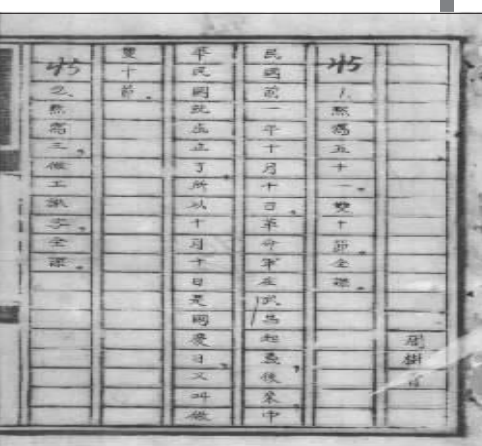 周樹
45
1.默寫五十一。雙十節全課。
民國前一年十月十日。革命軍在武昌起義,後來中
華民國就成立了所以十月十日是國慶日,又叫做
雙十節。
45
2.默寫三,做工識字全課。